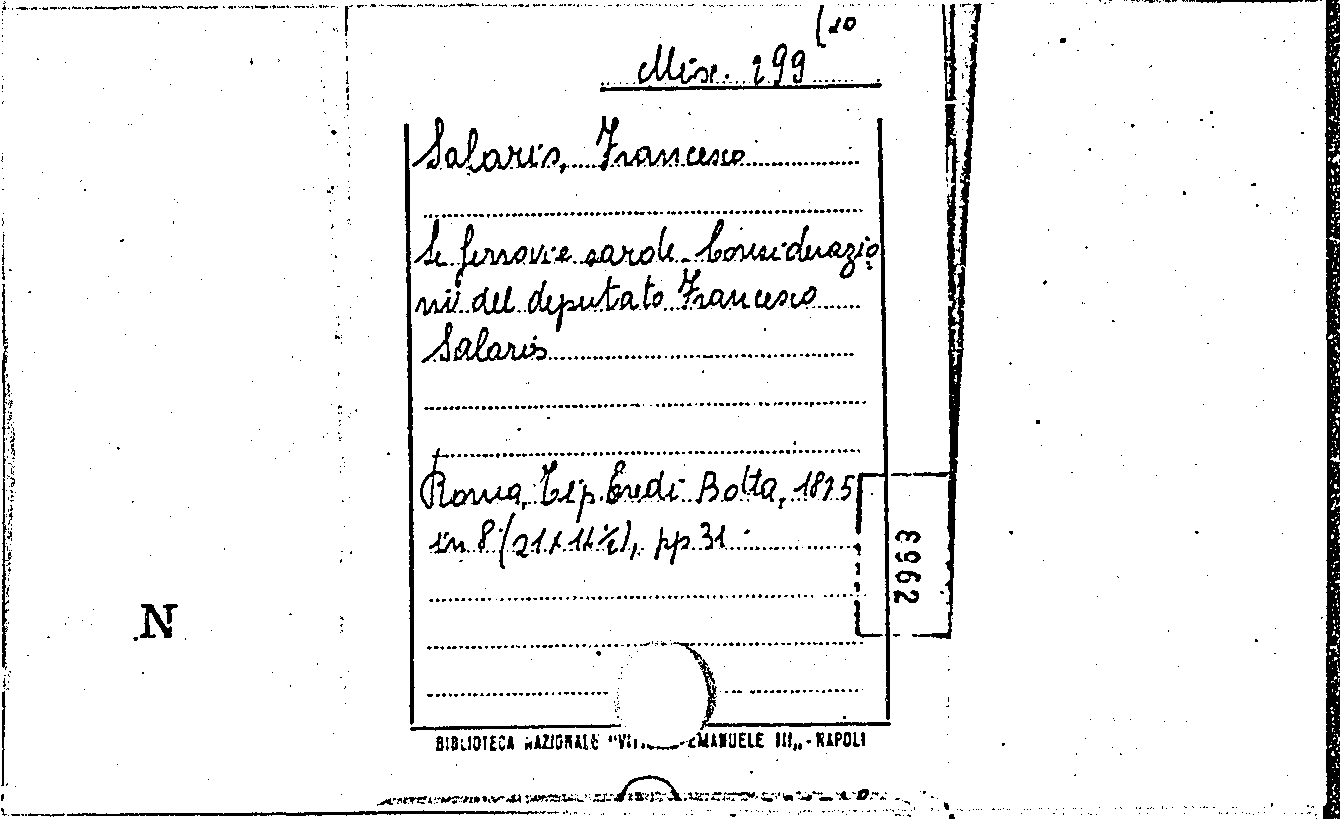 (20
Misc. 299
Salaris, Francesco
Le ferrovie sarde. Considerazio
ni del deputato Francesco
Salaris
Roma, Tip. Eredi Botta, 1875
in 8 (21x14½), pp 31.
3962
N
BIBLIOTECA NAZIONALE "VITT EMANUELE III„ - NAPOLI